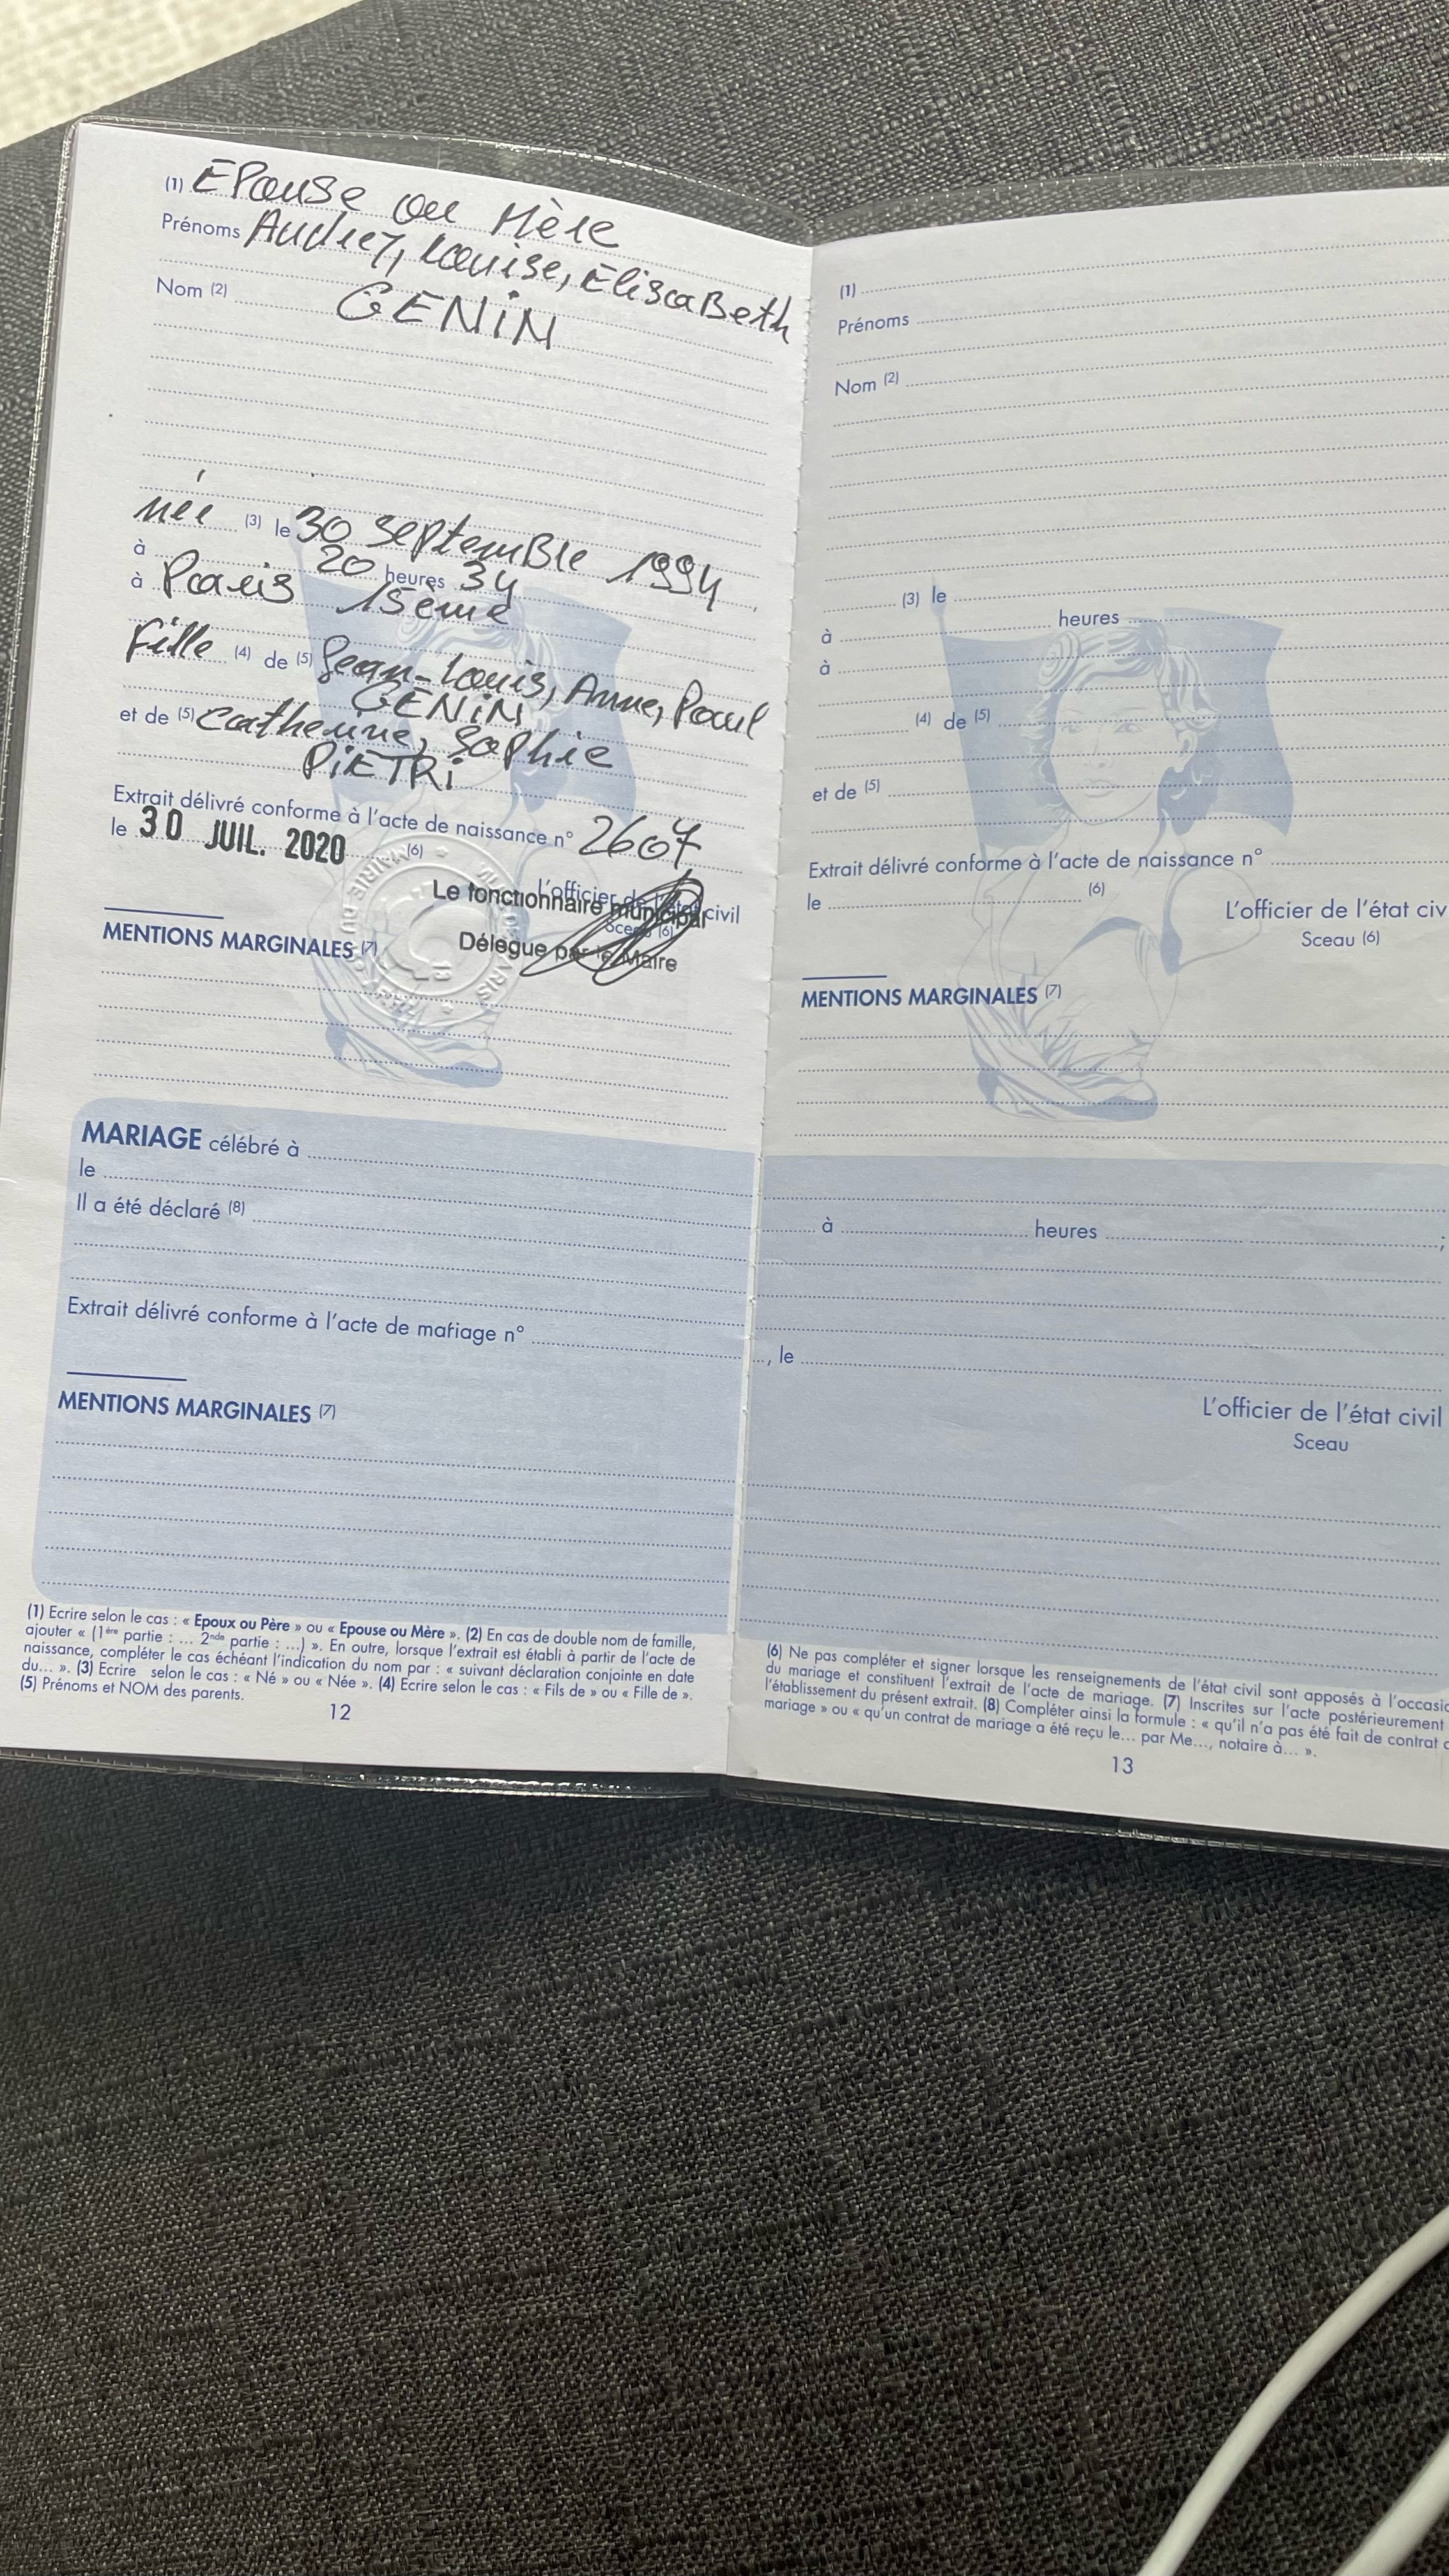 (1) Epouse ou Mère
Prénoms Audrey, Louise, Elisabeth
Nom (2) GENIN
née (3) le 30 septembre 1994
à 20 heures 34
à Paris 15ème
Fille (4) de (5) Jean-Louis, Anne, Paul
GENIN
et de (5) Catherine, Sophie
PIETRI
Extrait délivré conforme à l'acte de naissance n° 2607
le 30 JUIL. 2020 (6)
L'officier de l'état civil
Le fonctionnaire municipal
Sceau (6)
Délégué par le Maire
MENTIONS MARGINALES (7)
MARIAGE célébré à
le
Il a été déclaré (8)
Extrait délivré conforme à l'acte de mariage n°
MENTIONS MARGINALES (7)
(1) Ecrire selon le cas : « Epoux ou Père » ou « Epouse ou Mère ». (2) En cas de double nom de famille,
ajouter « (1ère partie : ... 2nde partie : ...) ». En outre, lorsque l'extrait est établi à partir de l'acte de
naissance, compléter le cas échéant l'indication du nom par : « suivant déclaration conjointe en date
du... ». (3) Ecrire selon le cas : « Né » ou « Née ». (4) Ecrire selon le cas : « Fils de » ou « Fille de ».
(5) Prénoms et NOM des parents.
12
(1)
Prénoms
Nom (2)
(3) le
à heures
à
(4) de (5)
et de (5)
Extrait délivré conforme à l'acte de naissance n°
le (6)
L'officier de l'état civ
Sceau (6)
MENTIONS MARGINALES (7)
à heures ;
, le
L'officier de l'état civil
Sceau
(6) Ne pas compléter et signer lorsque les renseignements de l'état civil sont apposés à l'occasio
du mariage et constituent l'extrait de l'acte de mariage. (7) Inscrites sur l'acte postérieurement
l'établissement du présent extrait. (8) Compléter ainsi la formule : « qu'il n'a pas été fait de contrat d
mariage » ou « qu'un contrat de mariage a été reçu le... par Me..., notaire à... ».
13